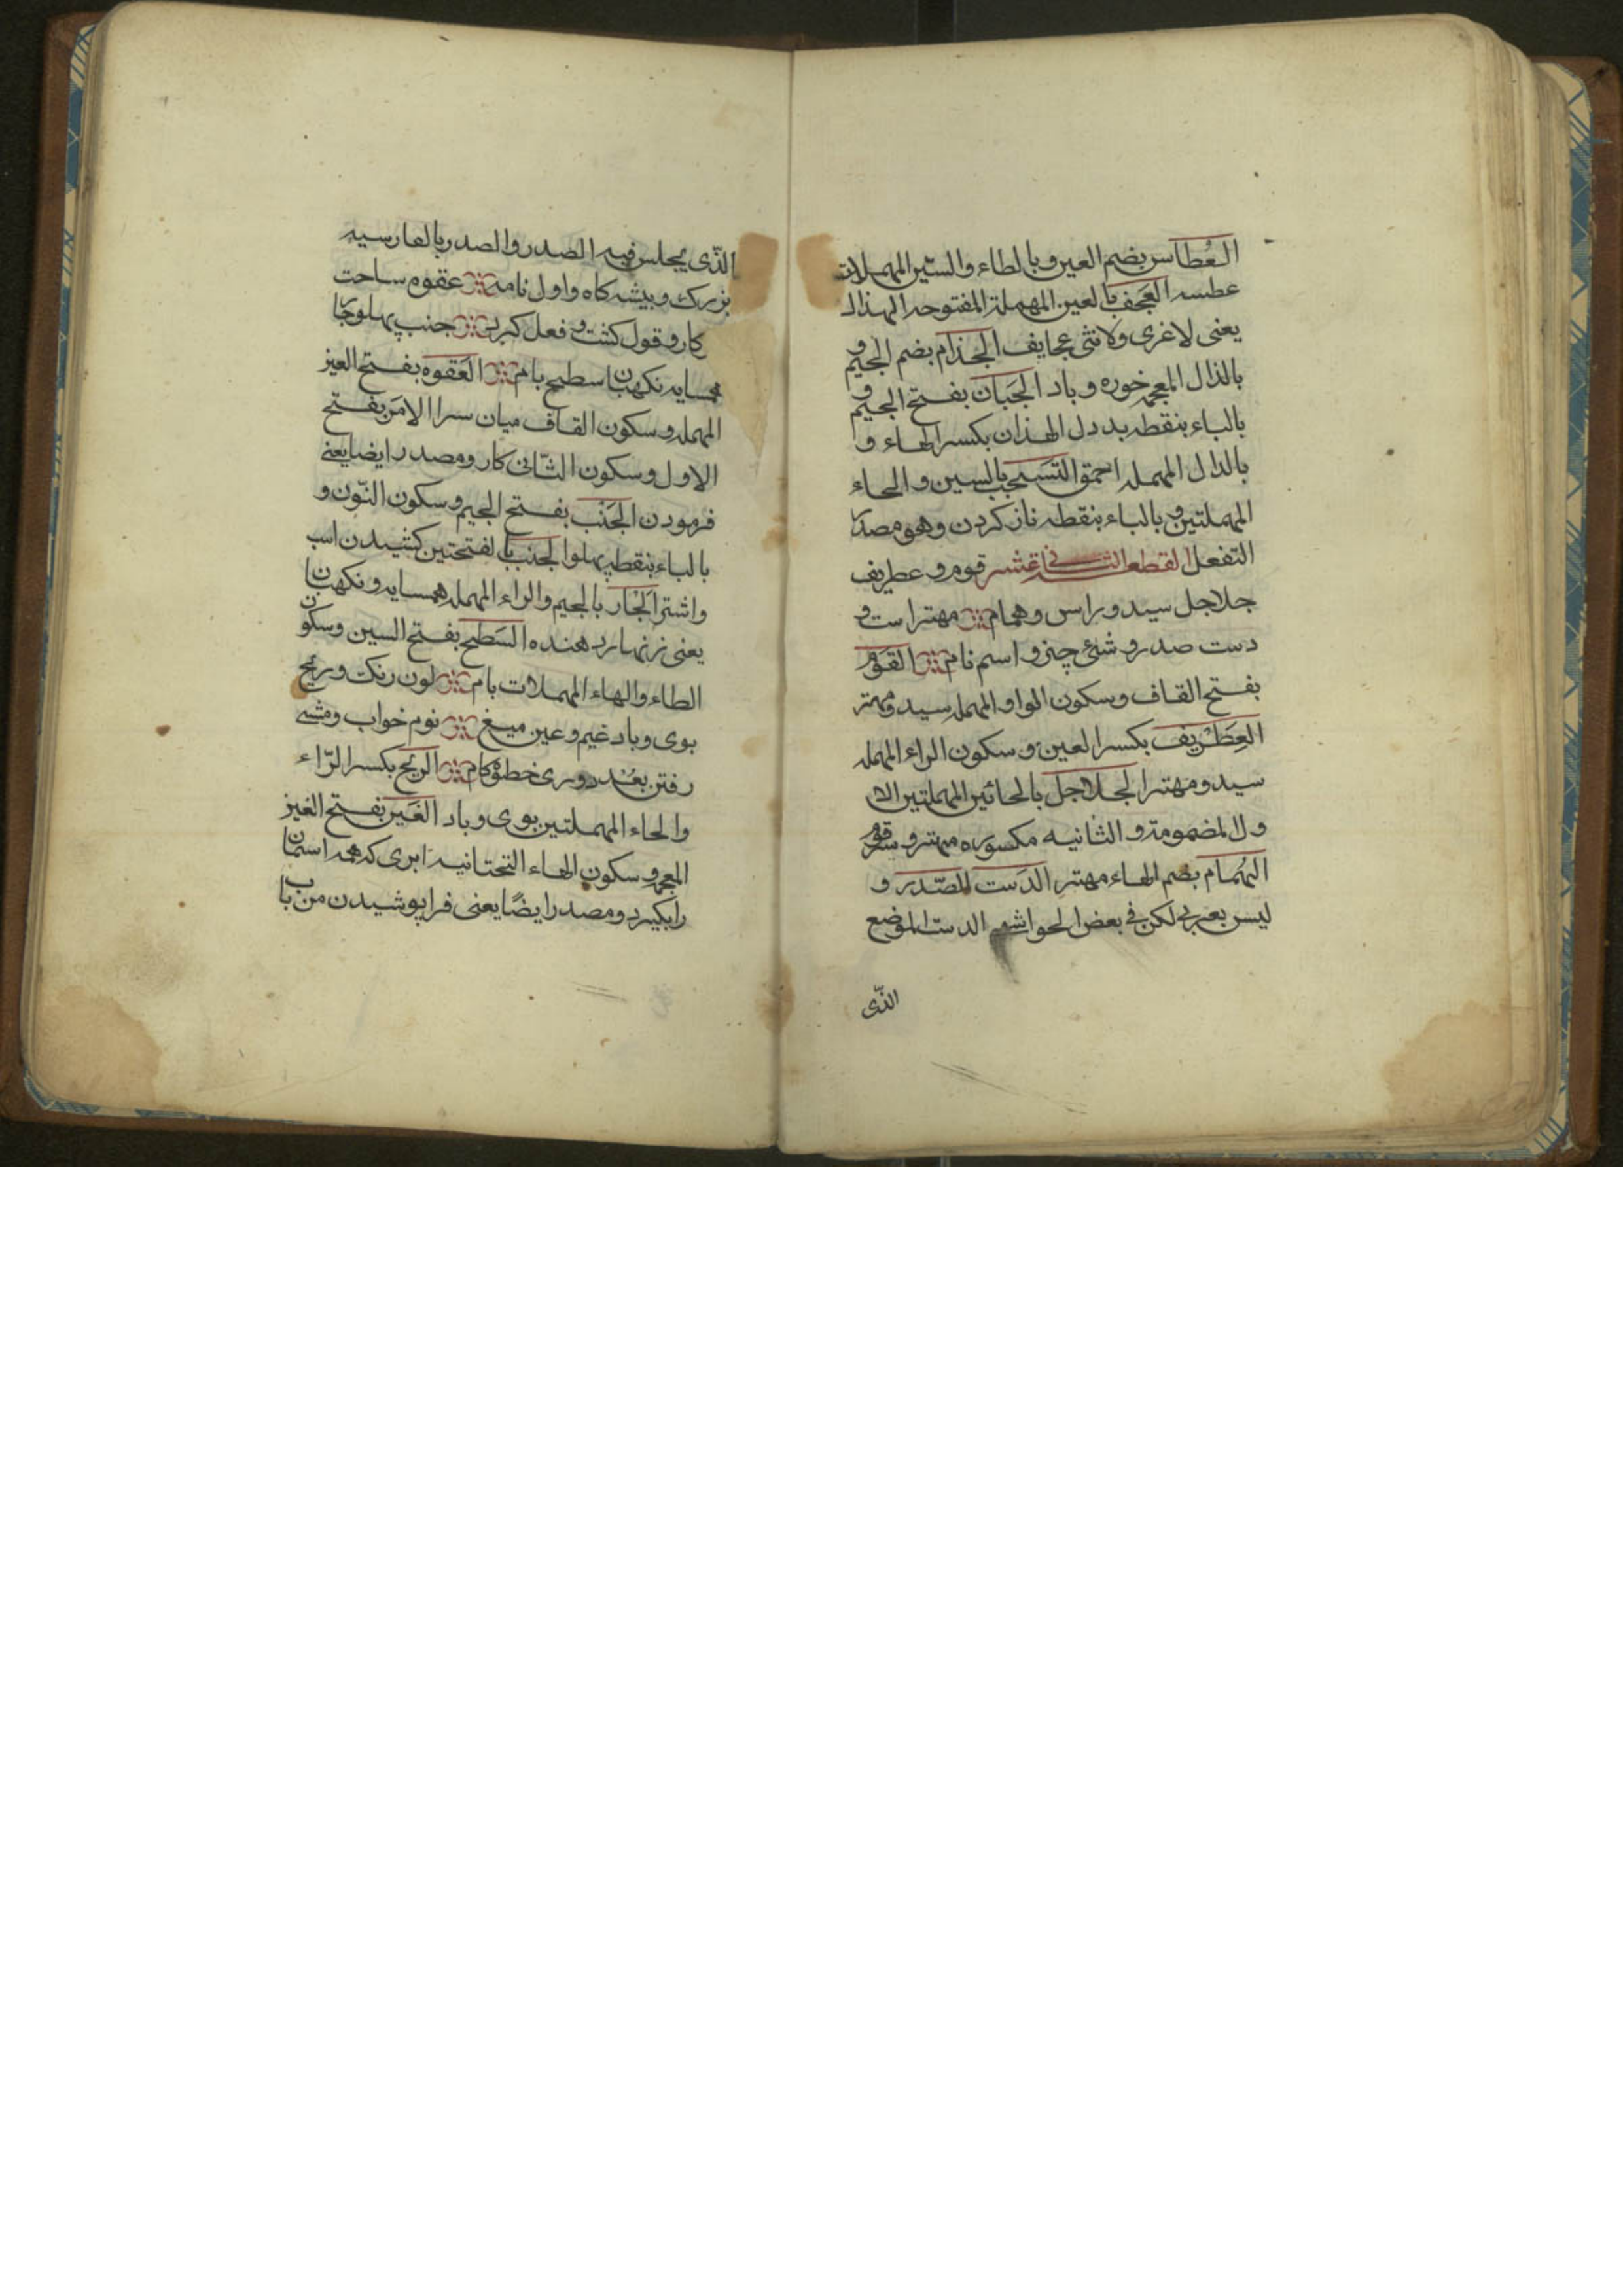 العُطاس بضم العين و بالطاء والسّين المهملات
عطسه العَجَف بالعين المهملة المفتوحه الهذال
يعنى لاغرى ولانثى عجايف الجذام بضم الجيم و
بالذال المعجمه خوره و باد الجَبان بفتح الجيم و
بالباء بنقطه بد دل الهذان بكسر الهاء و
بالدال المهمله احمق التسحب بالسين و الحاء
المهملتين و بالباء بنقطه ناز كردن وهو مصدر
التفعل القطعة قوم و عطريف
جلاجل سيد و راس و همام مهتر است و
دست صدر و شئ چيز و اسم نام القَوْم
بفتح القاف و سكون الواو المهمله سيد و مهتر
العِطْريف بكسر العين و سكون الراء المهمله
سيد و مهتر الجلاجل بالحائين المهملتين الا
ول المضمومة و الثانيه مكسوره مهتر و
الهُمَام بضم الهاء مهتر الدَست للصّدر و
ليس بعربى لكن فى بعض الحواشى الدست الموضع
الذّى
الذّى يجلس فيه الصدر والصدر بالفارسيه
بزرك و بيشه كاه و اول نامه عقوه ساحت
كار و قول كفت و فعل كبرى جنب پهلو جار
همسايه نكهبان سطيح بام العَقوه بفتح العين
المهمله و سكون القاف ميان سرا الامَر بفتح
الاول و سكون الثّانى كار و مصدر ايضا يعنى
فرمودن الجَنْب بفتح الجيم و سكون النّون و
بالباء بنقطه پهلو الجنب بالفتحتين كشيدن اسب
و اشتر الجَار بالجيم والراء المهمله همسايه و نكهبان
يعنى زنهار دهنده السَطيح بفتح السين وسكون
الطاء والهاء المهملات بام لون رنك و ريح
بوى و باد غيم و عين ميغ نوم خواب و مشى
رفتن بعُد دورى خطوة كام الريح بكسر الرّاء
و الحاء المهملتين بوى و باد الغَين بفتح الغين
المعجمه و سكون الهاء التحتانيه ابرى كه همه اسمان
را بكيرد و مصدر ايضًا يعنى فرا پوشيدن من باب